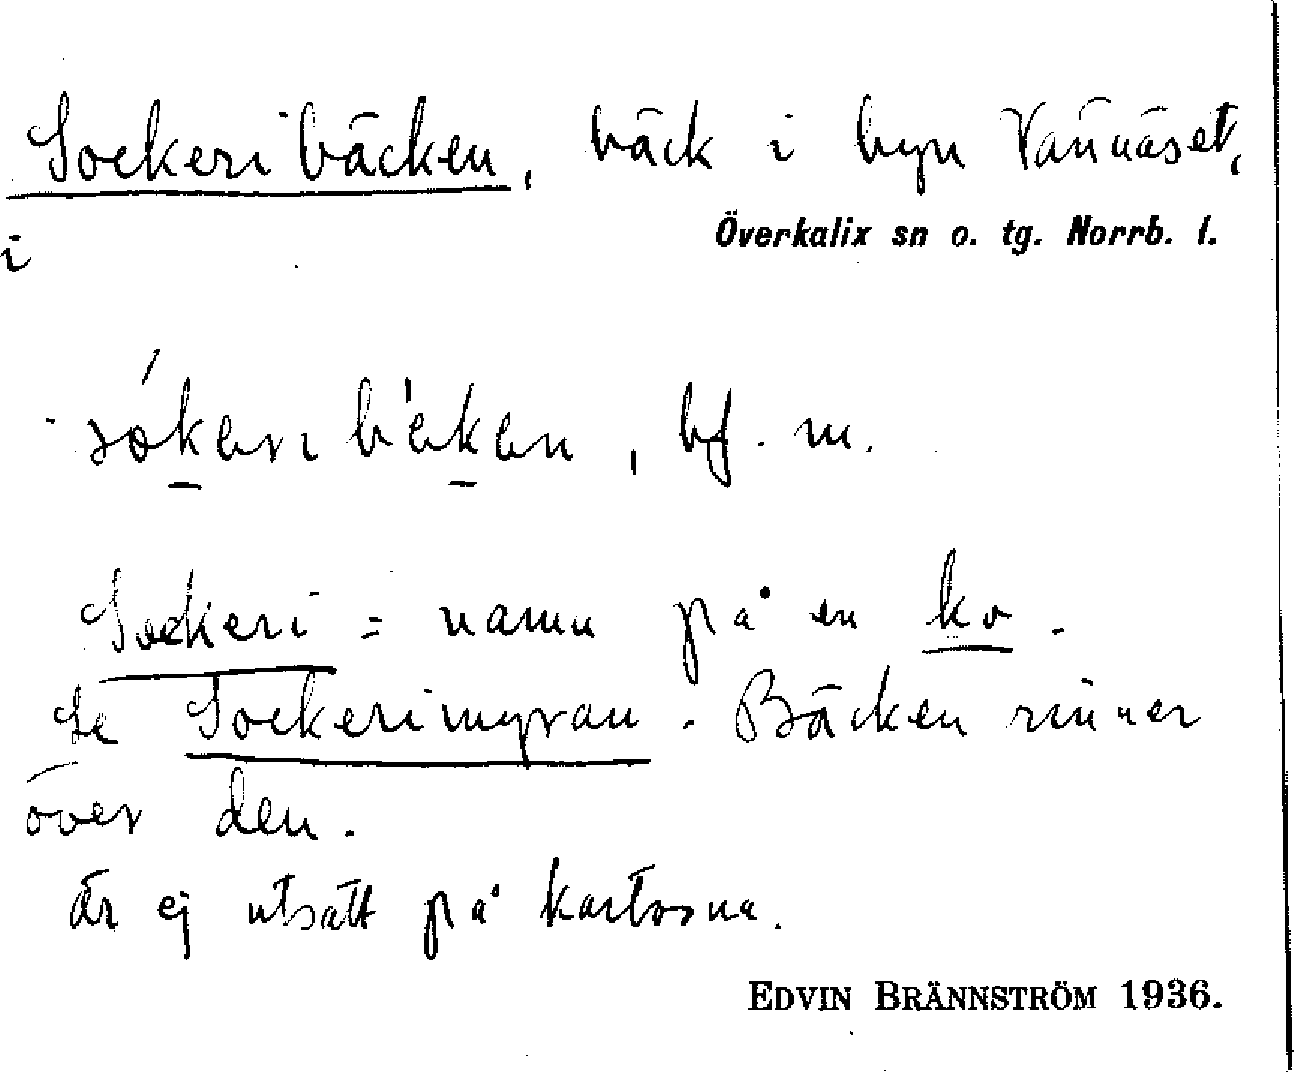 Sockeribäcken, bäck i byn Vännäset,
i Överkalix sn o. tg. Norrb. l.
sókeri bèken, bf. m.
Sockeri = namn på en ko.
Se Sockerimyran. Bäcken rinner
över den.
Är ej utsatt på kartorna.
EDVIN BRÄNNSTRÖM 1936.